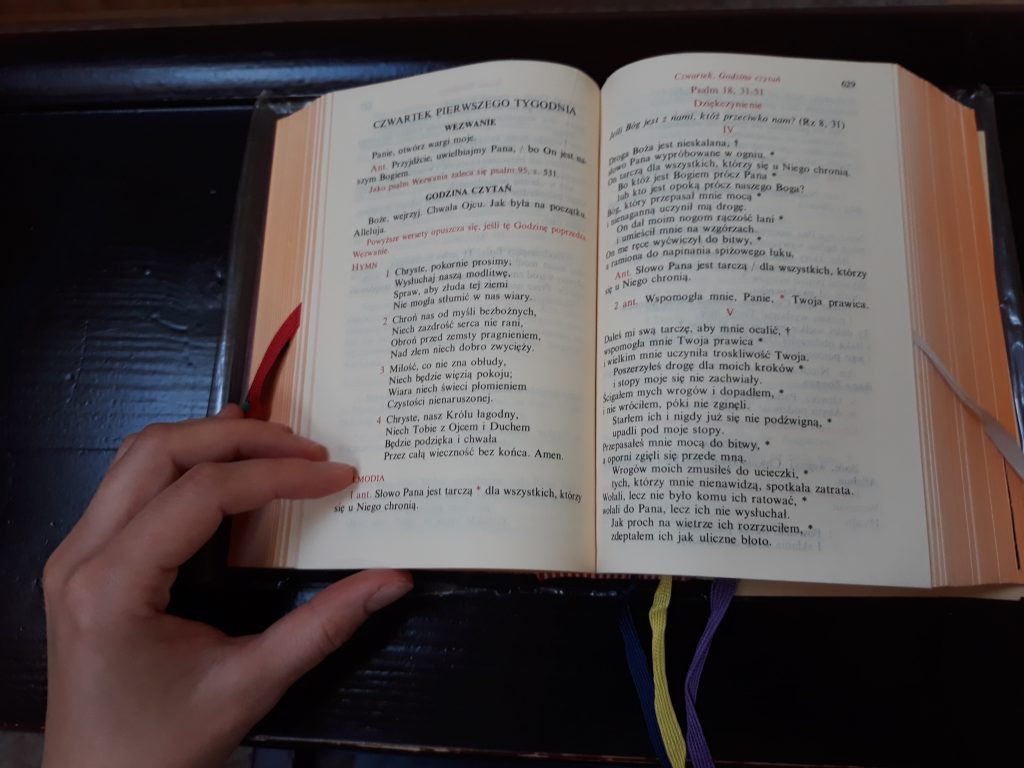 CZWARTEK PIERWSZEGO TYGODNIA
WEZWANIE
Panie, otwórz wargi moje.
Ant. Przyjdźcie, uwielbiajmy Pana, / bo On jest na-
szym Bogiem.
Jako psalm Wezwania zaleca się psalm 95, s. 531.
GODZINA CZYTAŃ
Boże, wejrzyj. Chwała Ojcu. Jak była na początku.
Alleluja.
Powyższe wersety opuszcza się, jeśli tę Godzinę poprzedza
Wezwanie.
HYMN
1 Chryste, pokornie prosimy,
Wysłuchaj naszą modlitwę,
Spraw, aby złuda tej ziemi
Nie mogła stłumić w nas wiary.
2 Chroń nas od myśli bezbożnych,
Niech zazdrość serca nie rani,
Obroń przed zemsty pragnieniem,
Nad złem niech dobro zwycięży.
3 Miłość, co nie zna obłudy,
Niech będzie więzią pokoju;
Wiara niech świeci płomieniem
Czystości nienaruszonej.
4 Chryste, nasz Królu łagodny,
Niech Tobie z Ojcem i Duchem
Będzie podzięka i chwała
Przez całą wieczność bez końca. Amen.
MODIA
1 ant. Słowo Pana jest tarczą * dla wszystkich, którzy
się u Niego chronią.
Czwartek, Godzina czytań 629
Psalm 18, 31-51
Dziękczynienie
Jeśli Bóg jest z nami, któż przeciwko nam? (Rz 8, 31)
IV
Droga Boża jest nieskalana, †
słowo Pana wypróbowane w ogniu. *
On tarczą dla wszystkich, którzy się u Niego chronią.
Bo któż jest Bogiem prócz Pana *
lub kto jest opoką prócz naszego Boga?
Bóg, który przepasał mnie mocą *
i nienaganną uczynił mą drogę.
On dał moim nogom rączość łani *
i umieścił mnie na wzgórzach.
On me ręce wyćwiczył do bitwy, *
a ramiona do napinania spiżowego łuku.
Ant. Słowo Pana jest tarczą / dla wszystkich, którzy
się u Niego chronią.
2 ant. Wspomogła mnie, Panie, * Twoja prawica.
V
Dałeś mi swą tarczę, aby mnie ocalić, †
wspomogła mnie Twoja prawica *
i wielkim mnie uczyniła troskliwość Twoja.
Poszerzyłeś drogę dla moich kroków *
i stopy moje się nie zachwiały.
Ścigałem mych wrogów i dopadłem, *
i nie wróciłem, póki nie zginęli.
Starłem ich i nigdy już się nie podźwigną, *
upadli pod moje stopy.
Przepasałeś mnie mocą do bitwy, *
a oporni zgięli się przede mną.
Wrogów moich zmusiłeś do ucieczki, *
tych, którzy mnie nienawidzą, spotkała zatrata.
Wołali, lecz nie było komu ich ratować, *
wołali do Pana, lecz ich nie wysłuchał.
Jak proch na wietrze ich rozrzuciłem, *
zdeptałem ich jak uliczne błoto.